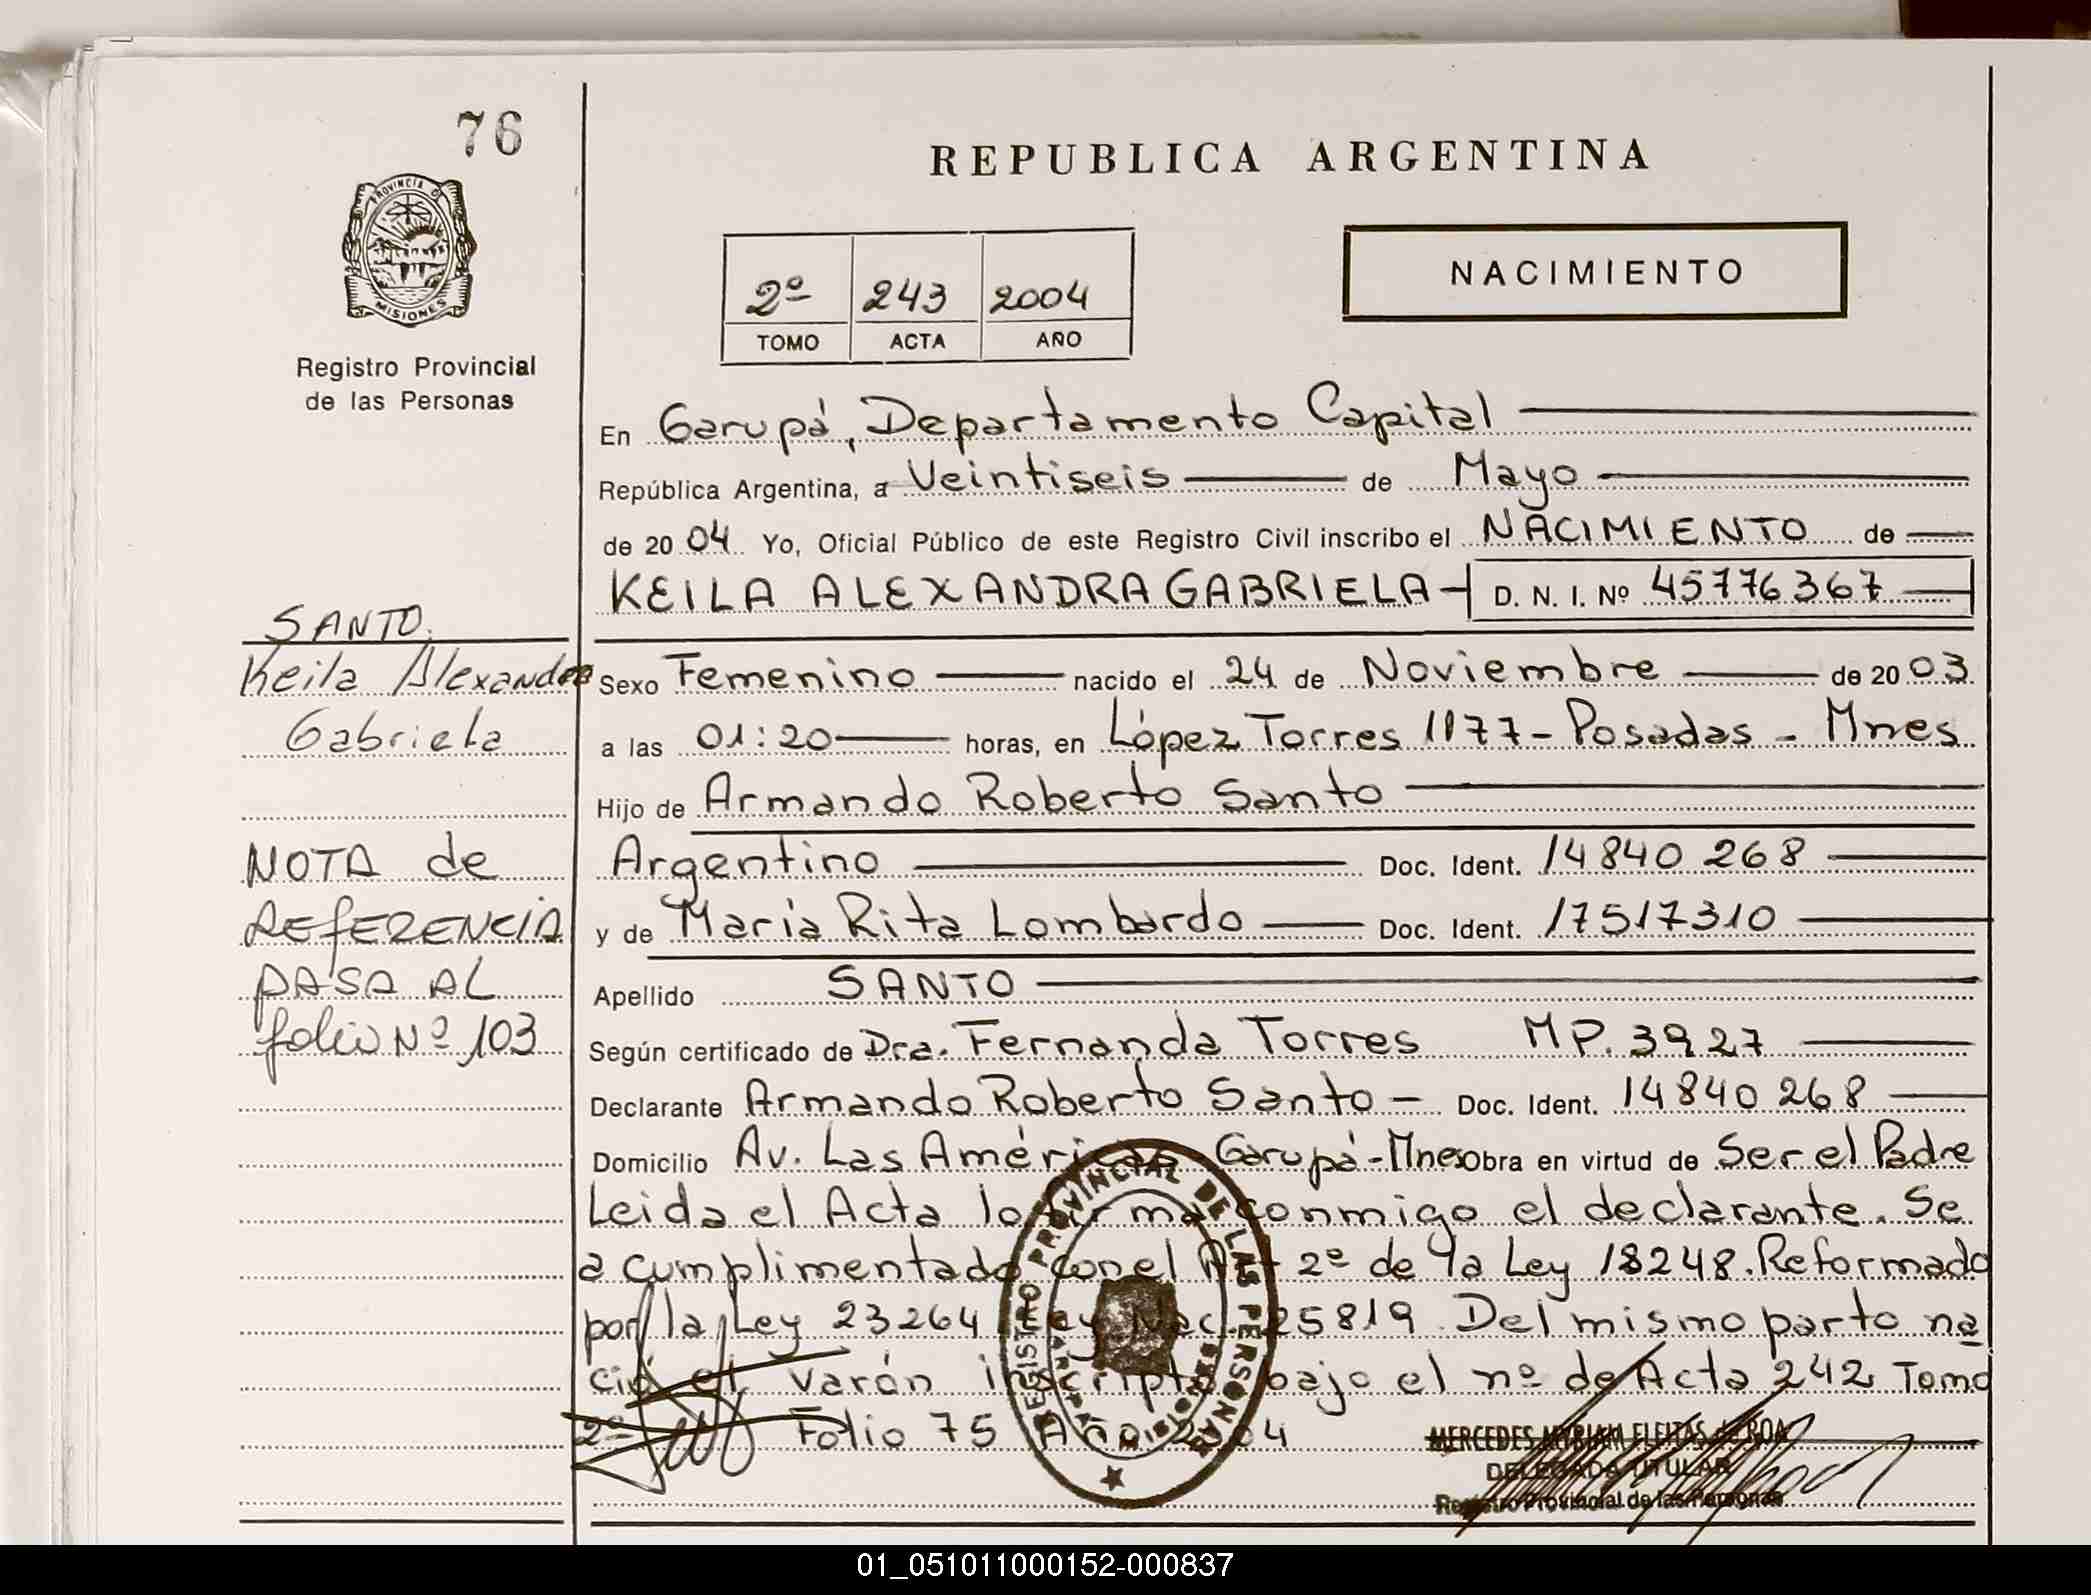 76
REPUBLICA ARGENTINA
PROVINCIA DE
MISIONES
Registro Provincial
de las Personas
2º 243 2004
TOMO ACTA AÑO
NACIMIENTO
En Garupá, Departamento Capital
República Argentina, a Veintiseis de Mayo
de 2004 Yo, Oficial Público de este Registro Civil inscribo el NACIMIENTO de
KEILA ALEXANDRA GABRIELA D. N. I. Nº 45776367
Sexo Femenino nacido el 24 de Noviembre de 2003
a las 01:20 horas, en López Torres 1177 - Posadas - Mnes
Hijo de Armando Roberto Santo
Argentino Doc. Ident. 14840268
y de María Rita Lombardo Doc. Ident. 17517310
Apellido SANTO
Según certificado de Dra. Fernanda Torres MP. 3927
Declarante Armando Roberto Santo - Doc. Ident. 14840268
Domicilio Av. Las Américas Garupá - Mnes obra en virtud de Ser el Padre
Leida el Acta lo firma conmigo el declarante. Se
a cumplimentado con el Art 2º de la Ley 18248. Reformado
por la Ley 23264 Ley Nac. 25819. Del mismo parto na
ció el varón inscripto bajo el nº de Acta 242 Tomo
2º Folio 75 Año 2004
SANTO.
Keila Alexandra
Gabriela
NOTA de
REFERENCIA
PASA AL
folio Nº 103
REGISTRO PROVINCIAL DE LAS PERSONAS
MERCEDES MYRIAM FLEITAS de ROA
DELEGADA TITULAR
Registro Provincial de las Personas
01_051011000152-000837